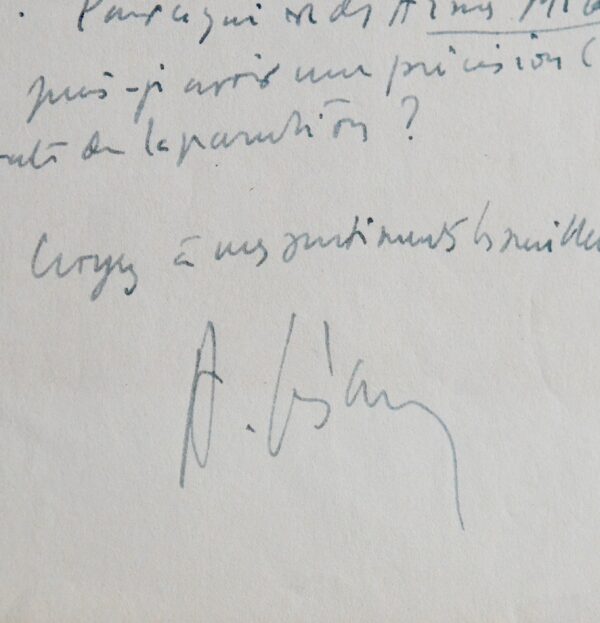 . Pour ce qui est des Armes Mira
puis-je avoir une précision (
de la parution ?
Croyez à mes sentiments les meilleu
A. Césaire